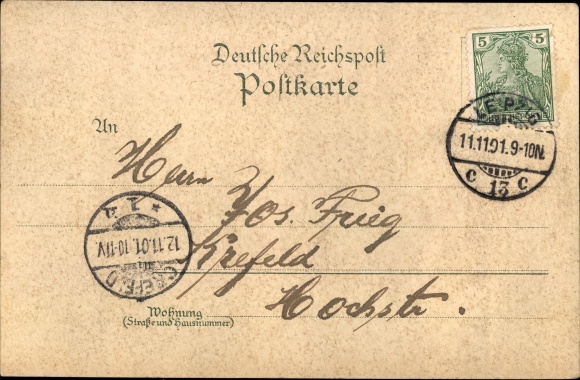 Deutsche Reichspost
Postkarte
5 5
LEIPZIG
11.11.01.9-10N.
C 13 C
An
Herrn
Jos. Frieg
Krefeld
Hochstr.
CREFELD
12.11.01.10-11V.
Wohnung
(Straße und Hausnummer)